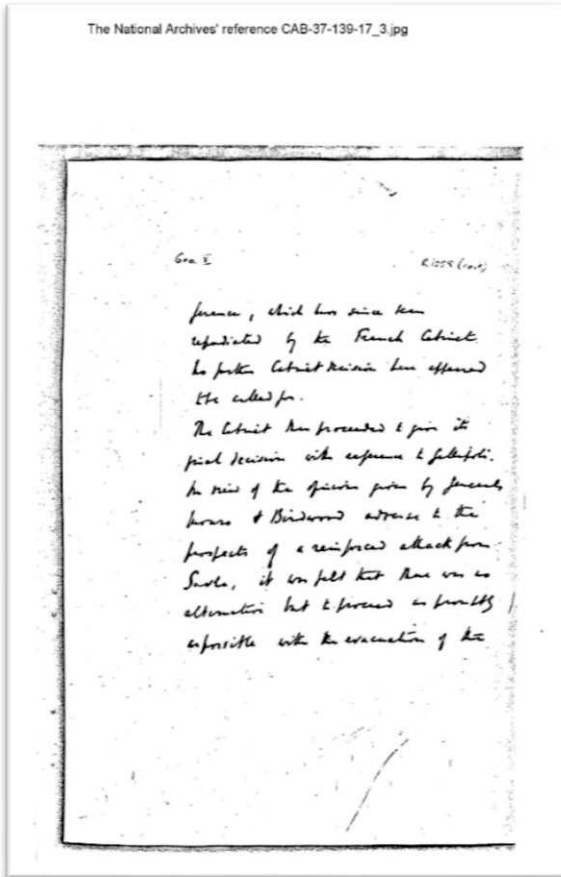 The National Archives' reference CAB-37-139-17_3.jpg
Geo V
R/058 (cont)
ference, which has since been
repudiated by the French Cabinet.
No further Cabinet decision here appeared
to be called for.
The Cabinet then proceeded to give its
final decision with reference to Gallipoli.
In view of the opinions given by Generals
Monro & Birdwood adverse to the
prospects of a reinforced attack from
Suvla, it was felt that there was no
alternative but to proceed as promptly
as possible with the evacuation of the